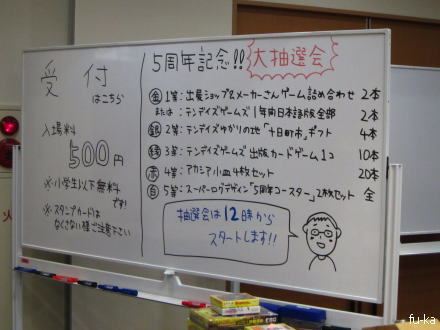 受付
はこちら
入場料
500円
※小学生以下無料
です!
※スタンプカードは
なくさない様ご注意下さい
5周年記念!! 大抽選会
金 1等: 出展ショップ&メーカーさんゲーム詰め合わせ 2本
または: テンデイズゲームズ1年間日本語版全部 2本
銀 2等: テンデイズゆかりの地「十日町市」ギフト 4本
緑 3等: テンデイズゲームズ出版カードゲーム1コ 10本
赤 4等: アカシア小皿4枚セット 20本
白 5等: スーパーログデザイン「5周年コースター」2枚セット 全
抽選会は12時から
スタートします!!
fu-ka